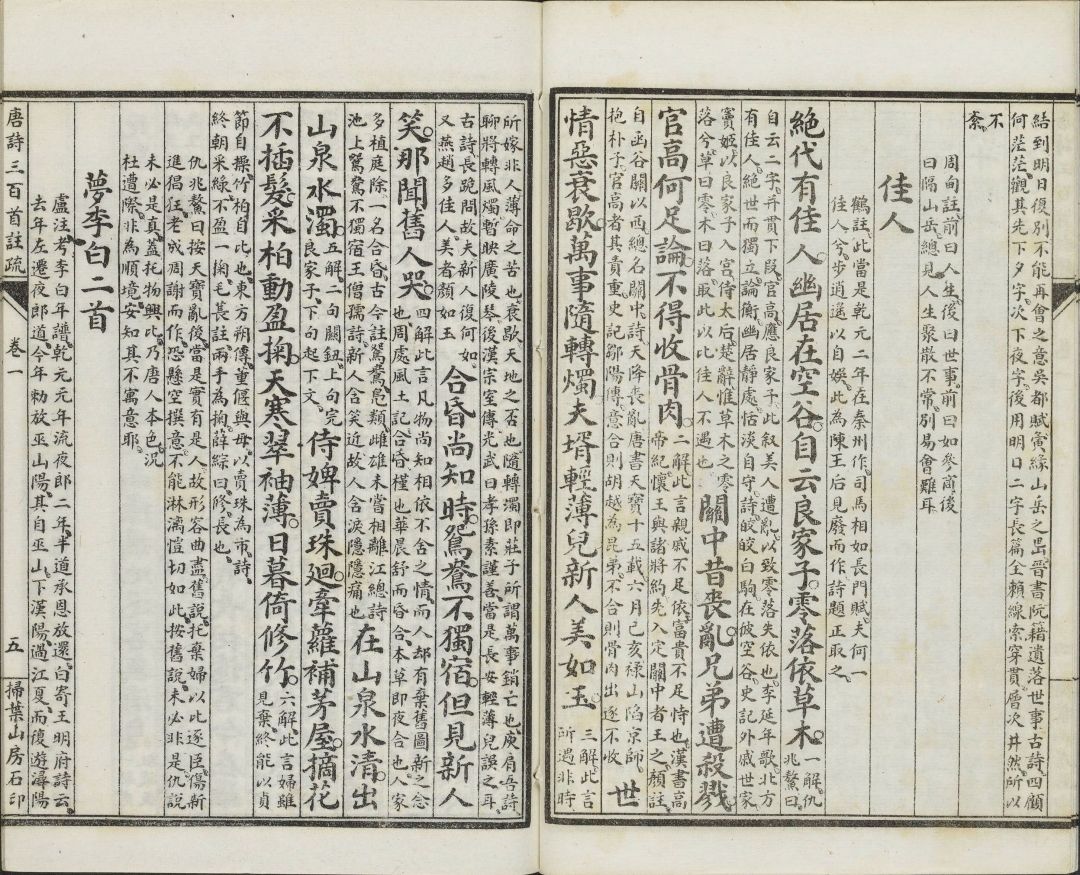 結到明日復別不能再會之意吳都賦夤緣山岳之岊晉書阮籍遺落世事古詩四顧
何茫茫觀其先下夕字次下夜字後用明日二字長篇全賴線索穿貫層次井然所以
不
紊
周甸註前曰人生後曰世事前曰如參商後
曰隔山岳總見人生聚散不常別易會難耳
佳人
鶴註此當是乾元二年在秦州作司馬相如長門賦夫何一
佳人兮步逍遙以自娛此為陳王后見廢而作詩題正取之
絶代有佳人幽居在空谷自云良家子零落依草木
一解仇
兆鰲曰
自云二字弁貫下叚官高應良家子此叙美人遭亂以致零落失依也李延年歌北方
有佳人絶世而獨立論衡幽居靜處恬淡自守詩皎皎白駒在彼空谷史記外戚世家
竇姬以良家子入宮侍太后楚辭惟草木之零
落兮草曰零木曰落取此以比佳人不遇也
關中昔喪亂兄弟遭殺戮
官高何足論不得收骨肉
二解此言親戚不足依富貴不足恃也漢書高
帝紀懷王與諸將約先入定關中者王之顏註
自函谷關以西總名關中詩天降喪亂唐書天寶十五載六月己亥祿山陷京師
抱朴子官高者其責重史記鄒陽傳意合則胡越為昆弟不合則骨肉出逐不收
世
情惡衰歇萬事隨轉燭夫壻輕薄兒新人美如玉
三解此言
所遇非時
所嫁非人薄命之苦也衰歇天地之否也隨轉濁即莊子所謂萬事銷亡也庾肩吾詩
聊將轉風燭暫映廣陵琴後漢宗室傳光武曰孝孫素謹善當是長安輕薄兒誤之耳
古詩長跪問故夫新人復何如
又燕趙多佳人美者顏如玉
合昏尚知時鴛鴦不獨宿但見新人
笑那聞舊人哭
四解此言凡物尚知相依不舍之情而人却有棄舊圖新之念
也周處風土記合昏槿也華晨舒而昏合本草即夜合也人家
多植庭除一名合昏古今註鴛鴦鳬類雌雄未當相離江總詩
池上鴛鴦不獨宿王僧孺詩新人含笑近故人含淚隱隱痛也
在山泉水清出
山泉水濁
五解二句關鈕上句完
良家子下句起下文
侍婢賣珠廻牽蘿補茅屋摘花
不插髮采柏動盈掬天寒翠袖薄日暮倚修竹
六解此言婦雖
見棄終能以貞
節自操竹柏自此也東方朔傳董偃與母以賣珠為市詩
終朝采綠不盈一掬毛萇註兩手為掬薛綜曰修長也
仇兆鰲曰按天寶亂後當是實有是人故形容曲盡舊說托棄婦以比逐臣傷新
進猖狂老成凋謝而作恐懸空撰意不能淋漓愷切如此按舊說未必非是仇說
未必是真蓋托物興比乃唐人本色況
杜遭際非為順境安知其不寓意耶
夢李白二首
盧注考李白年譜乾元元年流夜郎二年半道承恩放還白寄王明府詩云
去年左遷夜郎道今年勅放巫山陽其自巫山下漢陽過江夏而復遊潯陽
唐詩三百首註疏
卷一
五
掃葉山房石印